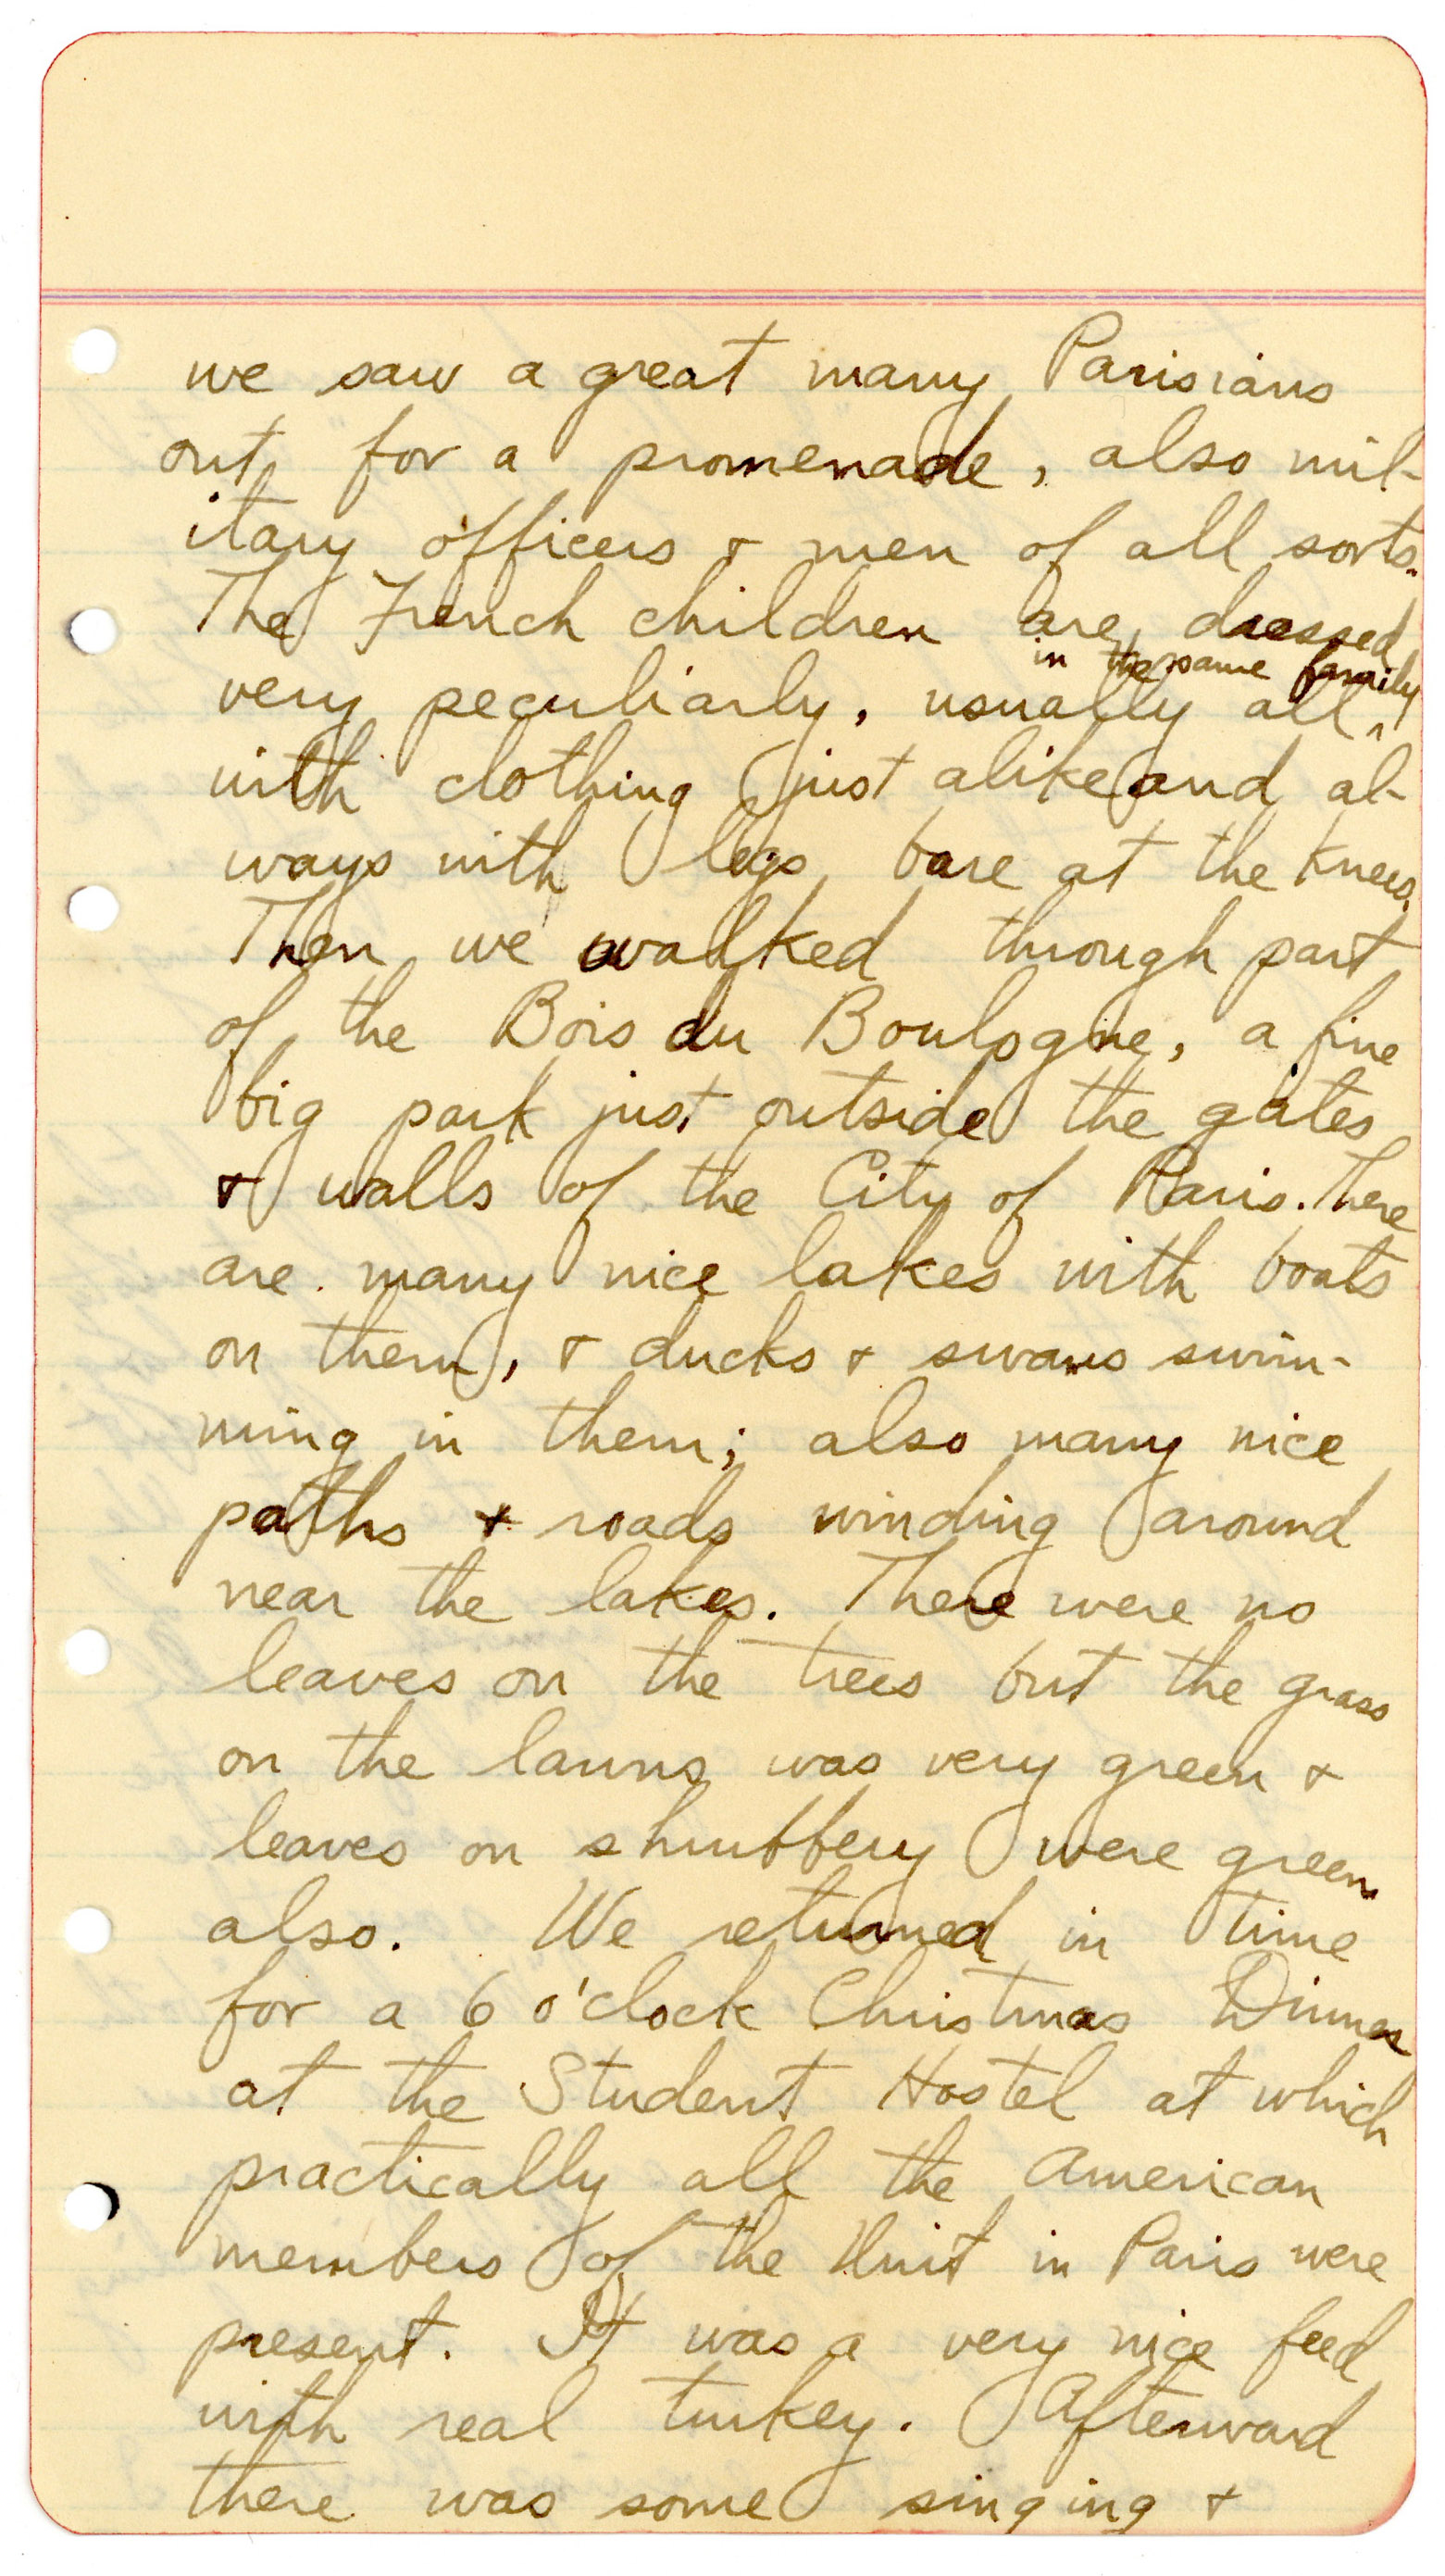 we saw a great many Parisians
out for a promenade, also mil-
itary officers & men of all sorts.
The French children are dressed
in the same family
very peculiarly, usually all ^
with clothing just alike and al-
ways with legs bare at the knees.
Then we walked through part
of the Bois du Boulogne, a fine
big park just outside the gates
& walls of the City of Paris. There
are many nice lakes with boats
on them, & ducks & swans swim-
ming in them; also many nice
paths & roads winding around
near the lakes. There were no
leaves on the trees but the grass
on the lawns was very green &
leaves on shrubbery were green
also. We returned in time
for a 6 o'clock Christmas Dinner
at the Student Hostel at which
practically all the American
members of the Unit in Paris were
present. It was a very nice feed
with real turkey. Afterward
there was some singing &